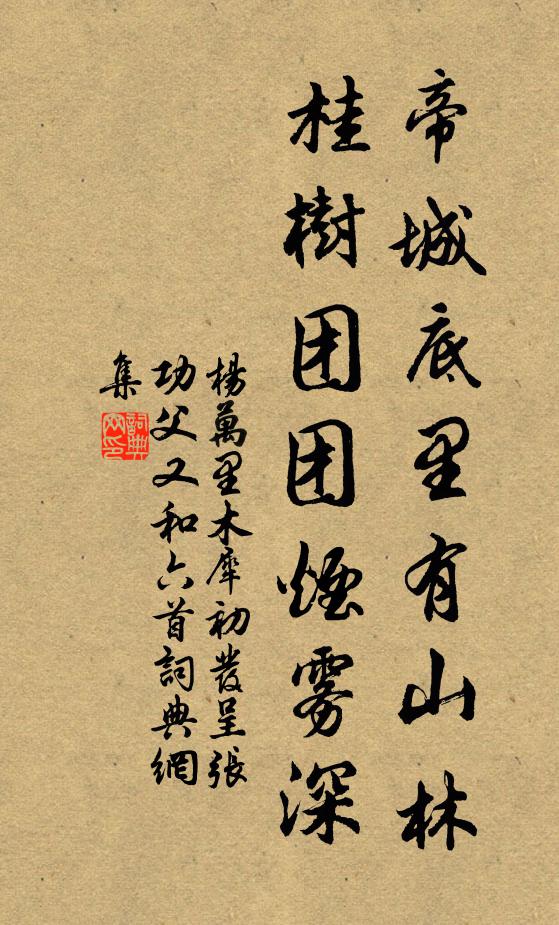 帝城底里有山林
桂樹团团煙雾深
楊萬里木犀初發呈張
功父又和六首詞典網
集
詞典
网印